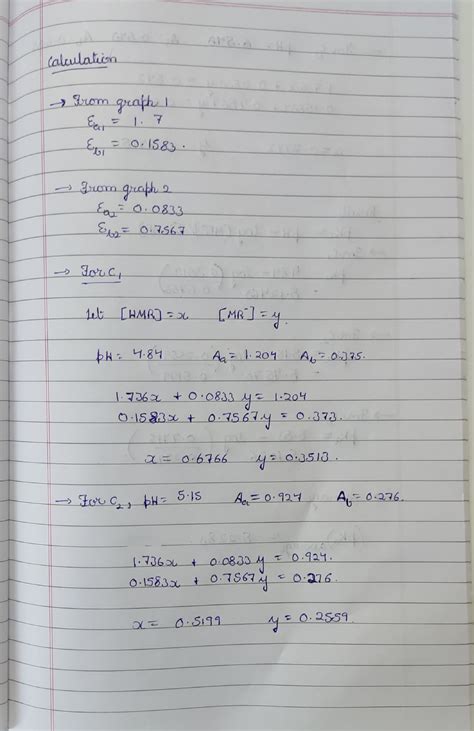 Calculation
→ From graph 1
Ɛa1 = 1.7
Ɛb1 = 0.1583.
→ From graph 2
Ɛa2 = 0.0833
Ɛb2 = 0.7567
→ For C1
Let [HMR] = x [MR-] = y.
pH = 4.84 Aa = 1.204 Ab = 0.375.
1.736x + 0.0833y = 1.204
0.1583x + 0.7567y = 0.373.
x = 0.6766 y = 0.3513.
→ For C2, pH = 5.15 Aa = 0.927 Ab = 0.276.
1.736x + 0.0833y = 0.924.
0.1583x + 0.7567y = 0.276.
x = 0.5199 y = 0.2559.